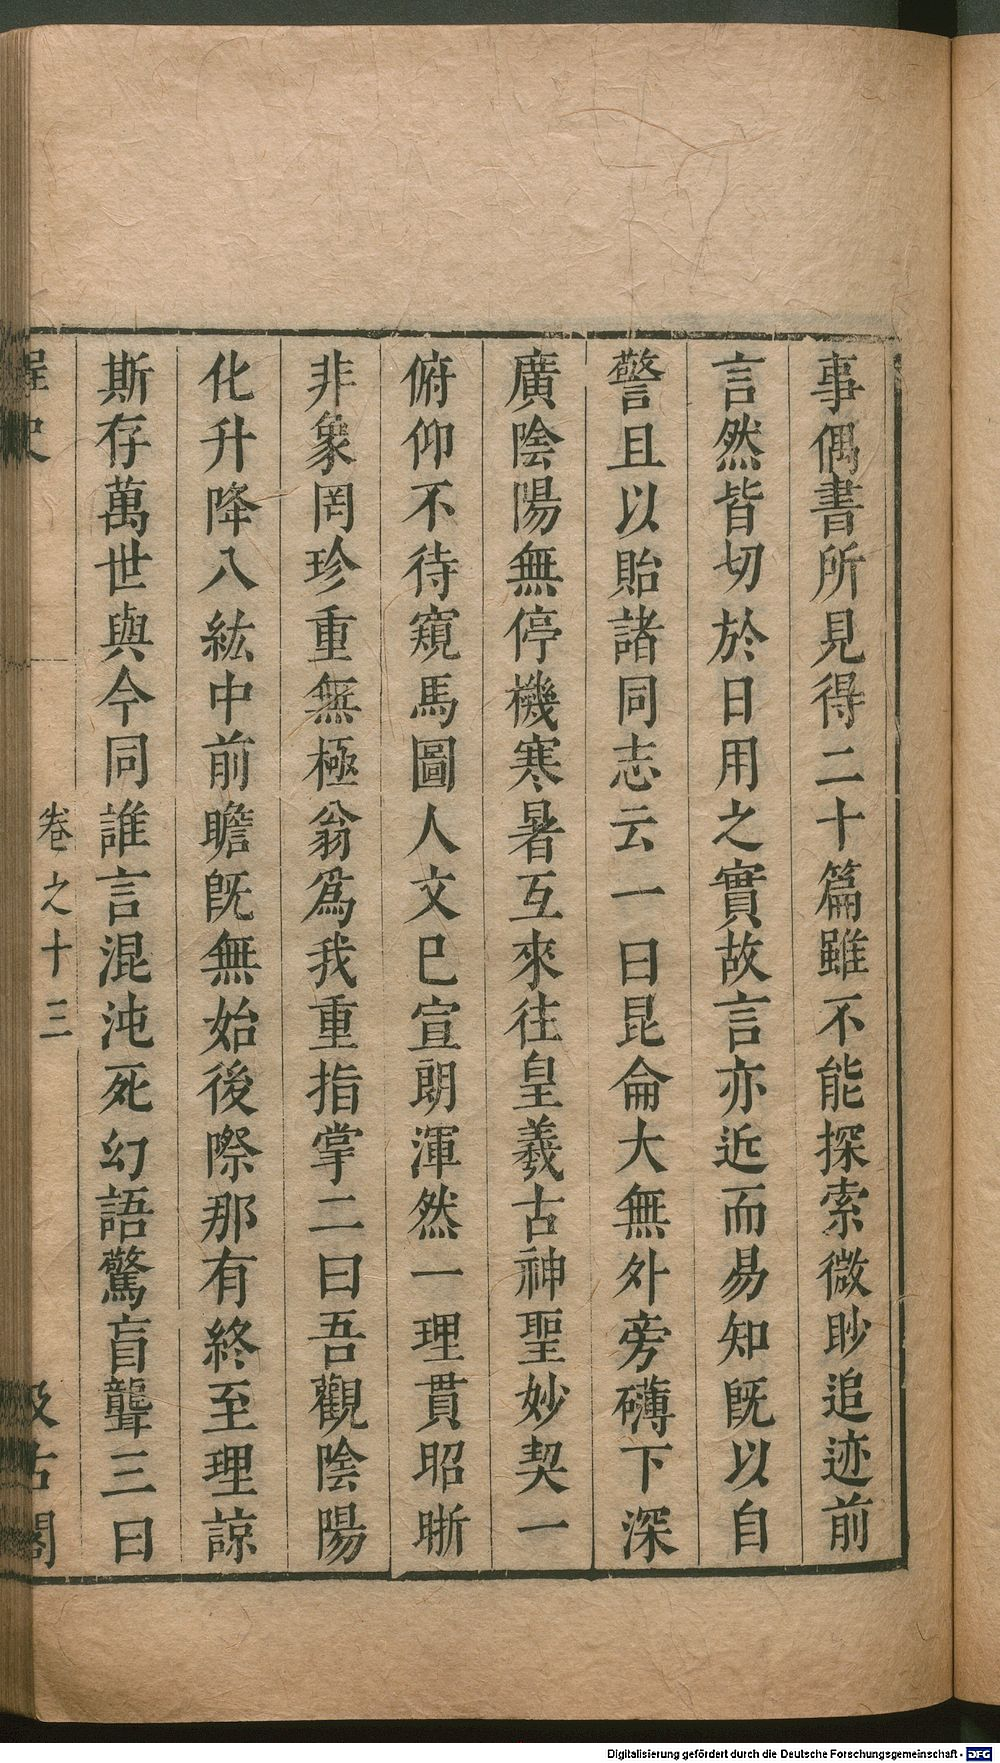 事偶書所見得二十篇雖不能探索微眇追迹前
言然皆切於日用之實故言亦近而易知旣以自
警且以貽諸同志云一曰昆侖大無外旁礴下深
廣陰陽無停機寒暑互來往皇羲古神聖妙契一
俯仰不待窺馬圖人文巳宣朗渾然一理貫昭晣
非象罔珍重無極翁爲我重指掌二曰吾觀陰陽
化升降八紘中前瞻旣無始後際那有終至理諒
斯存萬世與今同誰言混沌死幻語驚盲聾三曰
桯史 卷之十三 汲古閣
Digitalisierung gefördert durch die Deutsche Forschungsgemeinschaft - DFG